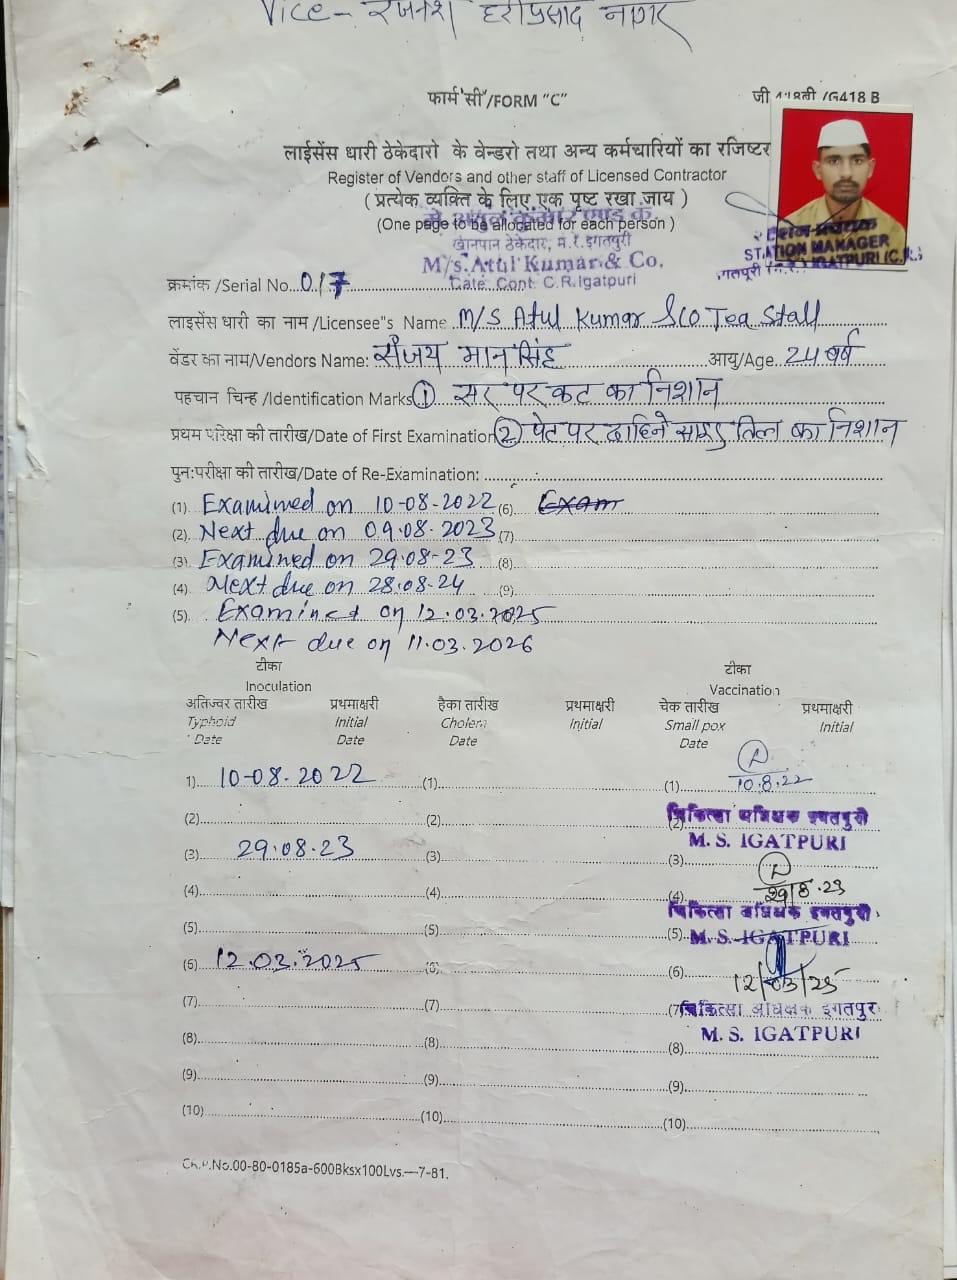 Vice - रजनेश हरीप्रसाद नागर
फार्म 'सी'/FORM "C"
जी 418बी /G418 B
लाईसेंस धारी ठेकेदारो के वेन्डरो तथा अन्य कर्मचारियों का रजिष्टर
Register of Vendors and other staff of Licensed Contractor
( प्रत्येक व्यक्ति के लिए एक पृष्ट रखा जाय )
(One page to be allocated for each person )
मे. अतुल कुमार एण्ड कं.
खानपान ठेकेदार, म.रे.इगतपुरी
M/s. Atul Kumar & Co.
Cate. Cont. C.R.Igatpuri
STATION MANAGER
IGATPURI (C.R.)
क्रमांक /Serial No. 017
लाइसेंस धारी का नाम /Licensee"s Name M/S Atul Kumar S/O Tea Stall
वेंडर का नाम/Vendors Name: संजय मानसिंह आयु/Age. 24 वर्ष
पहचान चिन्ह /Identification Marks ① सर पर कट का निशान
प्रथम परिक्षा की तारीख/Date of First Examination ② पेट पर दाहिने साइड तिल का निशान
पुनःपरीक्षा की तारीख/Date of Re-Examination:
(1) Examined on 10-08-2022 (6) Exam
(2) Next due on 09.08.2023 (7)
(3) Examined on 29.08-23 (8)
(4) Next due on 28.08.24 (9)
(5) Examined on 12.03.2025
Next due on 11.03.2026
टीका टीका
Inoculation Vaccination
अतिज्वर तारीख प्रथमाक्षरी हैका तारीख प्रथमाक्षरी चेक तारीख प्रथमाक्षरी
Typhoid Initial Cholera Initial Small pox Initial
Date Date Date Date
1) 10-08-2022 (1) (1) 10.8.22
(2) (2) (2) चिकित्सा अधिक्षक इगतपुरी
M. S. IGATPURI
(3) 29.08.23 (3) (3)
(4) (4) (4) 29/8.23
चिकित्सा अधिक्षक इगतपुरी
(5) (5) (5) M. S. IGATPURI
(6) 12.03.2025 (6) (6) 12/03/25
(7) (7) (7) चिकित्सा अधिक्षक इगतपुर
M. S. IGATPURI
(8) (8) (8)
(9) (9) (9)
(10) (10) (10)
Ch.P.No.00-80-0185a-600Bksx100Lvs.—7-81.